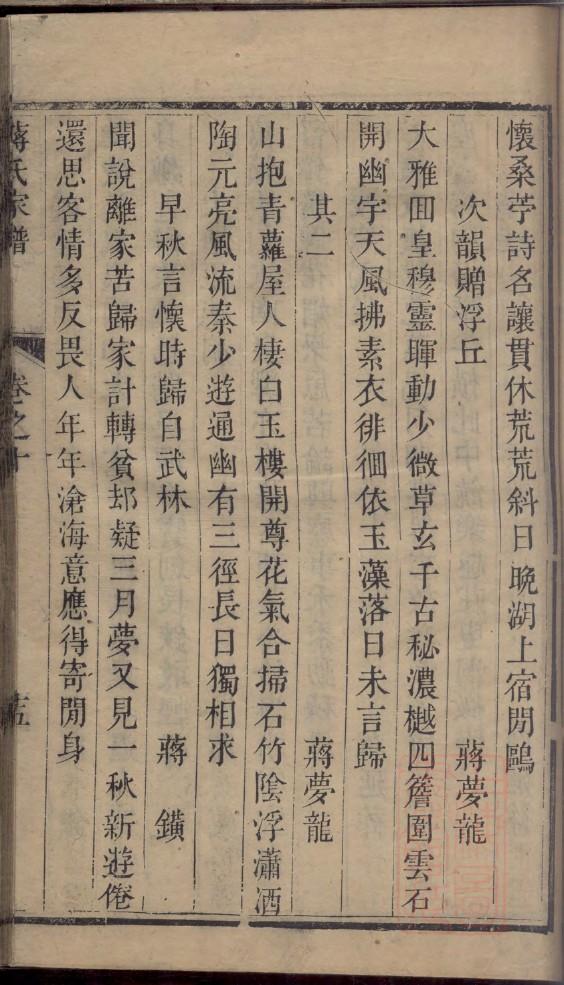 懷桑苧詩名讓貫休荒荒斜日晚湖上宿閒鷗
次韻贈浮丘 蔣夢龍
大雅囬皇穆靈暉動少微草玄千古秘濃樾四簷圍雲石
開幽宇天風拂素衣徘徊依玉藻落日未言歸
其二 蔣夢龍
山抱青蘿屋人棲白玉樓開尊花氣合掃石竹陰浮瀟洒
陶元亮風流秦少遊通幽有三徑長日獨相求
早秋言懷時歸自武林 蔣鐄
聞說離家苦歸家計轉貧却疑三月夢又見一秋新遊倦
還思客情多反畏人年年滄海意應得寄閒身
蔣氏家譜 卷之十 十五